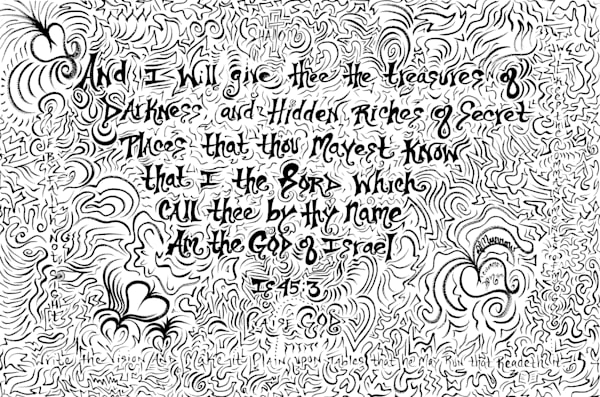 And I will give thee the treasures of
Darkness, and Hidden Riches of Secret
Places that thou Mayest Know
that I the LORD which
Call thee by thy Name
Am the GOD of Israel
Is 45:3
Praise God
Write the Vision And Make it Plain upon Tables that he May Run that Readeth it